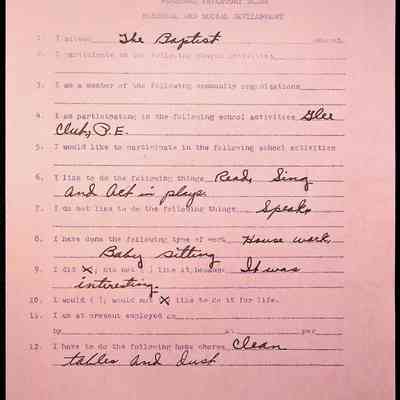 PERSONAL INVENTORY BLANK
PERSONAL AND SOCIAL DEVELOPMENT
1. I attend The Baptist church.
2. I participate in the following church activities
3. I am a member of the following community organizations
4. I am participating in the following school activities Glee
Club, P.E.
5. I would like to participate in the following school activities
6. I like to do the following things Read, Sing
and Act in plays.
7. I do not like to do the following things Speak,
8. I have done the following type of work House work,
Baby sitting
9. I did (X); did not ( ) like it because It was
interesting.
10. I would ( ); would not (X) like to do it for life.
11. I am at present employed as
by at per
12. I have to do the following home chores Clean
tables and dust